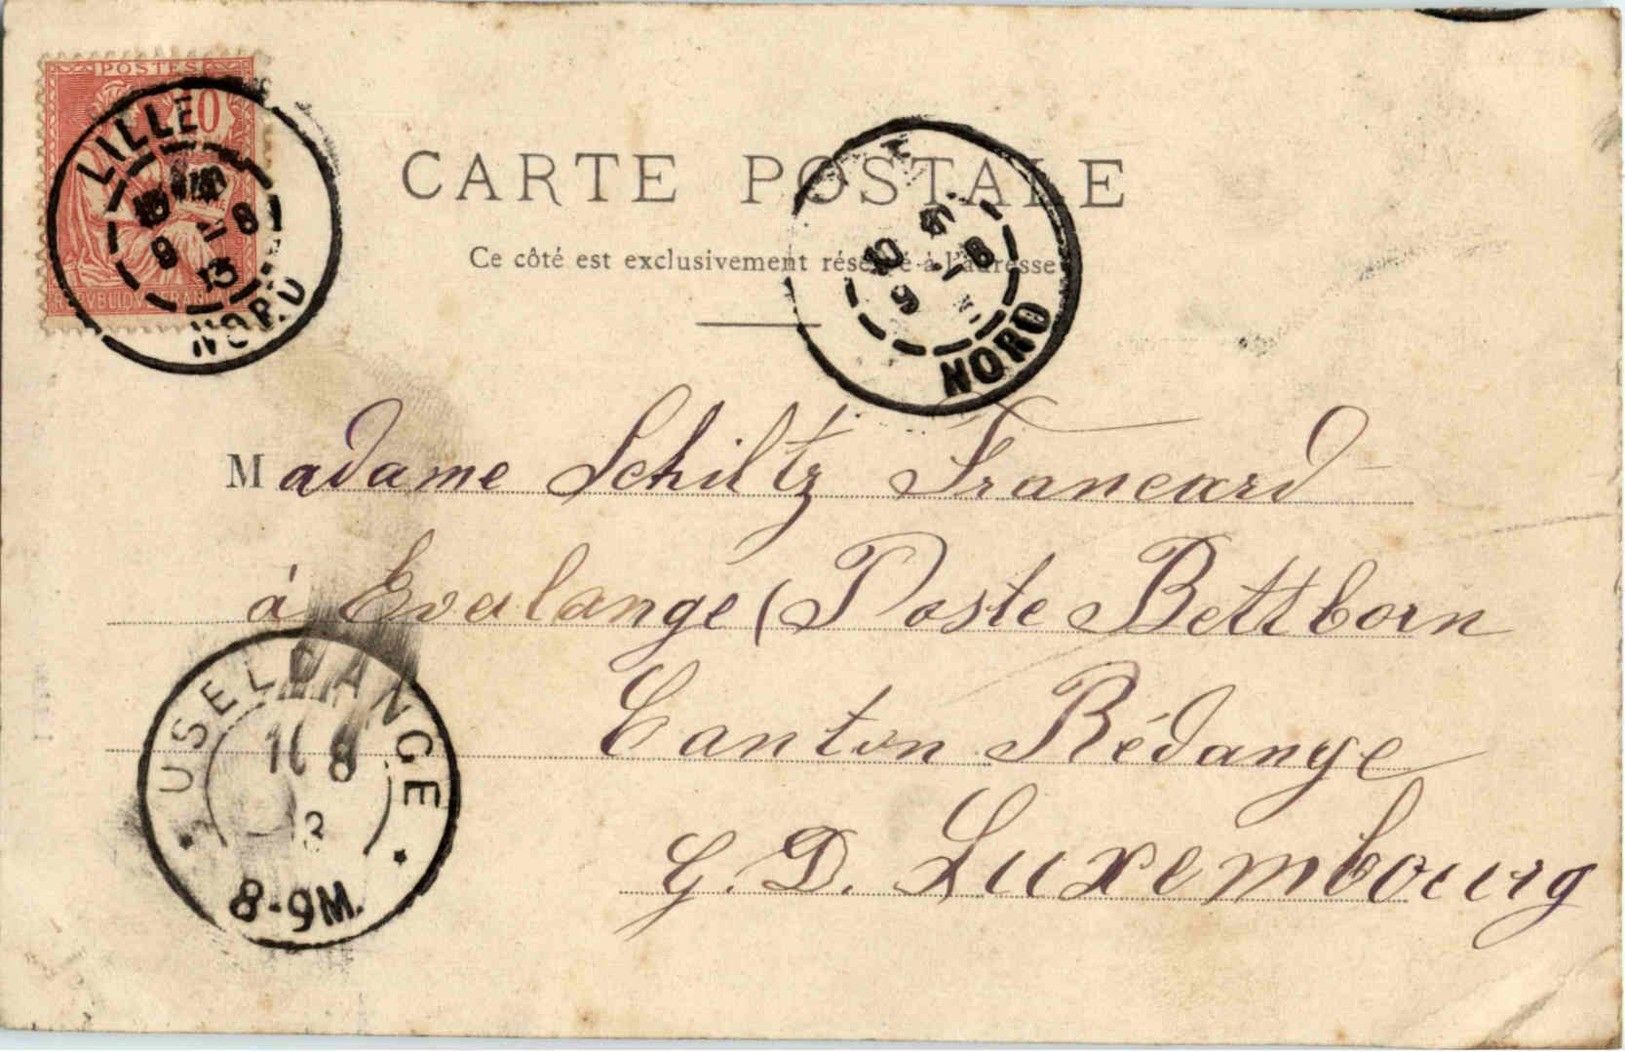 POSTES
10
LILLE
9 8
03
NORD
CARTE POSTALE
Ce côté est exclusivement réservé à l'adresse
9 8
NORD
Madame Schiltz Francard
à Evelange (Poste Bettborn
Canton Rédange
G. D. Luxembourg
USELDANGE
10 8
3
8-9M.